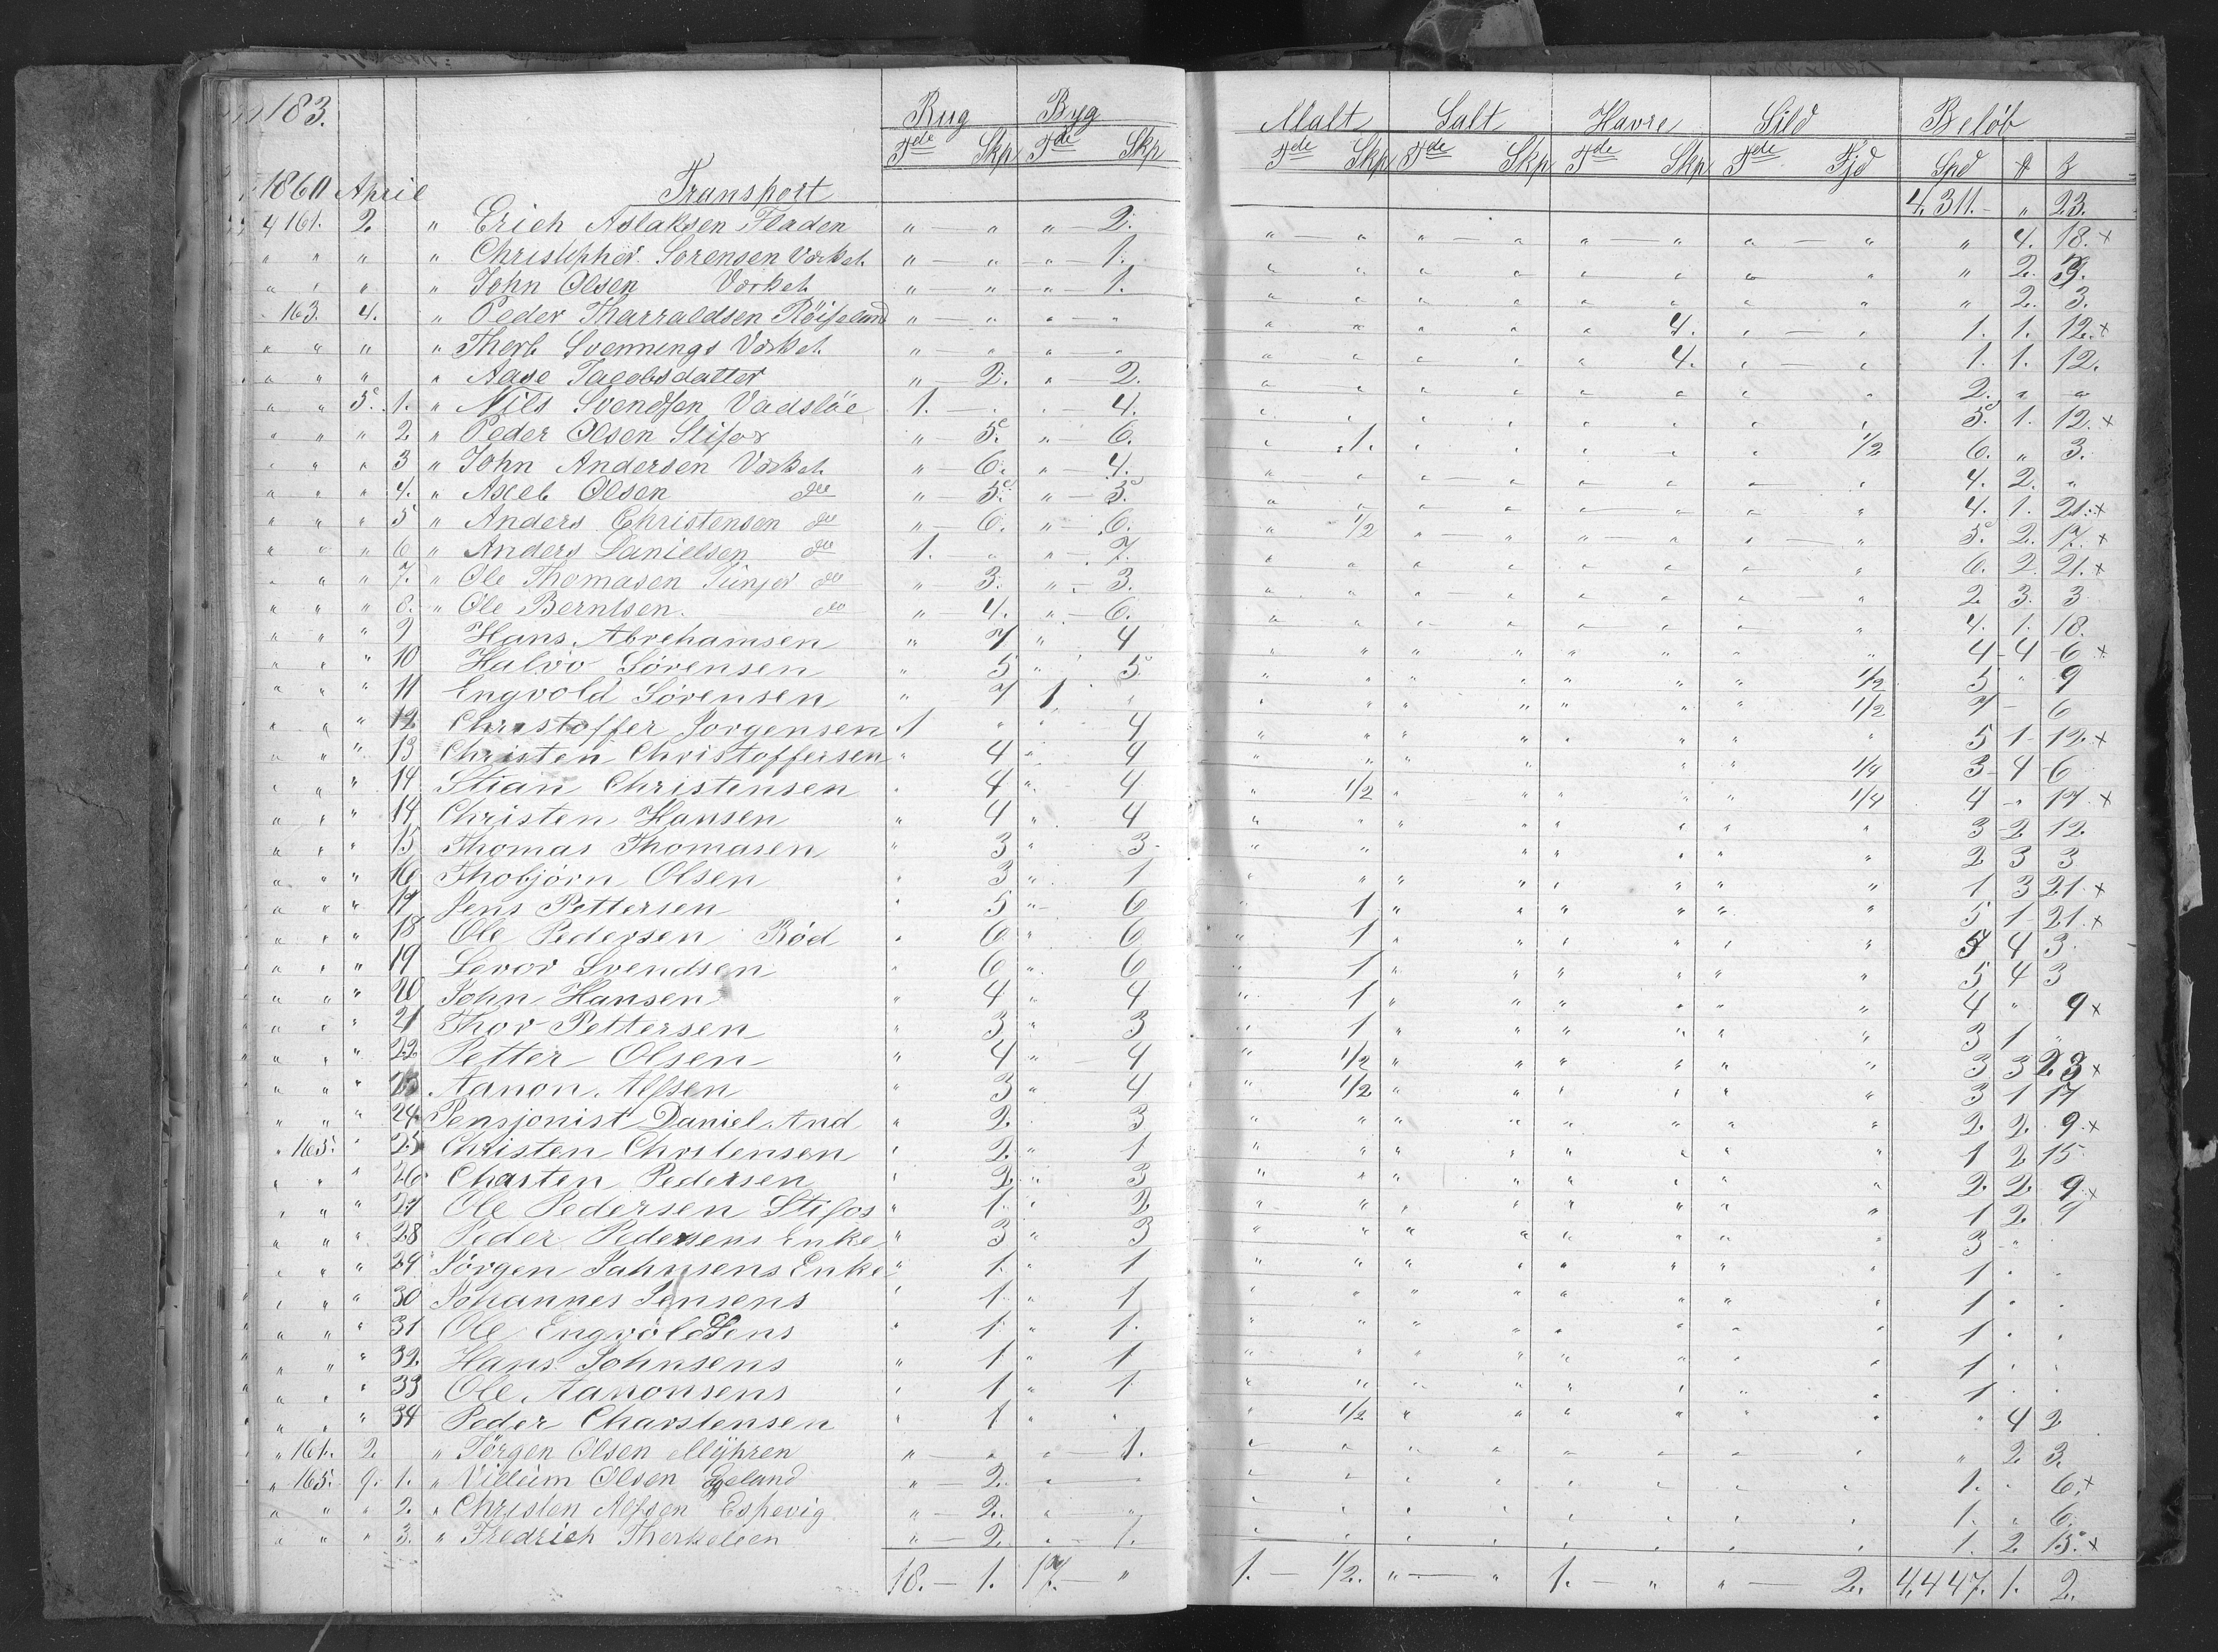 183. Rug Byg Malt Salt Havre Sild Beløb
Tde Skp Tde Skp Tde Skp Tde Skp Tde Skp Tde Fjd Spd
1860 April Transport 4,311. " 23.
4 161. 2. " Erich Aslaksen Fladen " " " 2. " " " " " " " " " 4. 18. x
" " " " Christopher Sorensen Værket " " " 1. " " " " " " " " " 2. 3.
" " " " John Olsen Værket " " " 1. " " " " " " " " " 2. 3.
" 163. 4. " Peder Tharraldsen Röiseland " " " " " " " " " 4. " " 1. 1. 12. x
" " " " Therb Svennings Værket " " " " " " " " " 4. " " 1. 1. 12.
" " " " Aase Jacobsdatter " 2. " 2. " " " " " " " " 2. " "
" " 5. 1. " Nils Svendsen Vadslöe 1. " " 4. " " " " " " " " 5. 1. 12. x
" " " 2. " Peder Olsen Stifos " 5. " 6. " 1. " " " " " 1/2 6. " 3.
" " " 3 " John Andersen Værket " 6. " 4. " " " " " " " " 4. 2. "
" " " 4. " Axeb Olsen do " 5. " 5. " " " " " " " " 4. 1. 21. x
" " " 5 " Anders Christensen do " 6. " 6. " 1/2 " " " " " " 5. 2. 17. x
" " " 6 " Anders Danielsen do 1. " " 7. " " " " " " " " 6. 2. 21. x
" " " 7. " Ole Thomasen Junger do " 3. " 3. " " " " " " " " 2. 3. 3
" " " 8. " Ole Berntsen. do " 4. " 6. " " " " " " " " 4. 1. 18.
" " " 9 Hans Abrehamsen " 7 " 4 " " " " " " " " 4 4 6 x
" " " 10 Halvo Sörensen " 5 " 5 " " " " " " " 1/2 5 " 9
" " " 11 Engvold Sörensen " 7 1 " " " " " " " " 1/2 7 - 6
" " " 12 Christoffer Jorgensen 1 " " 4 " " " " " " " " 5 1 12 x
" " " 13 Christen Christoffersen " 4 " 4 " " " " " " " 1/4 3 4 6
" " " 14 Stian Christensen " 4 " 4 " 1/2 " " " " " 1/4 4 " 17 x
" " " 14 Christen Hansen " 4 " 4 " " " " " " " " 3 2 12
" " " 15 Thomas Thomasen " 3 " 3 " " " " " " " " 2 3 3
" " " 16 Thobjörn Olsen " 3 " 1 " " " " " " " " 1 3 21 x
" " " 17 Jens Pettersen " 5 " 6 " 1 " " " " " " 5 1 21 x
" " " 18 Ole Pedersen Röd " 6 " 6 " 1 " " " " " " 5 4 3
" " " 19 Levor Svendsen " 6 " 6 " 1 " " " " " " 5 4 3
" " " 20 John Hansen " 4 " 4 " 1 " " " " " " 4 " 9 x
" " " 21 Thor Pettersen " 3 " 3 " 1 " " " " " " 3 1 "
" " " 22 Petter Olsen " 4 " 4 " 1/2 " " " " " " 3 3 23 x
" " " 23 Aanon Alfsen " 3 " 4 " 1/2 " " " " " " 3 1 17
" " " 24 Pensjonist Daniel And " 2 " 3 " " " " " " " " 2 2 9 x
" 165. " 25 Christen Chrstensen " 2 " 1 " " " " " " " " 1 2 15
" " " 26 Charsten Pedersen " 2 " 3 " " " " " " " " 2 2 9 x
" " " 27 Ole Pedersen Stifos " 1 " 2 " " " " " " " " 1 2 9
" " " 28 Peder Pedersens Enke " 3 " 3 " " " " " " " " 3 " "
" " " 29 Jörgen Jahnsens Enke " 1 " 1 " " " " " " " " 1 " "
" " " 30 Johannes Jensens " 1 " 1 " " " " " " " " 1 " "
" " " 31 Ole Engvoldsens " 1 " 1 " " " " " " " " 1 " "
" " " 32 Hans Johnsens " 1 " 1 " " " " " " " " 1 " "
" " " 33 Ole Aanonsens " 1 " 1 " " " " " " " " 1 " "
" " " 34 Peder Charstensen " 1 " " " 1/2 " " " " " " " 4 2
" 161. 2 " Jörgen Olsen Myhren " " " 1. " " " " " " " " " 2 3.
" 165. 9. 1. " Villum Olsen " 2. " " " " " " " " " " 1. " 6. x
" " " 2. " Christen Alfsen Espevig " 2. " " " " " " " " " " 1. " 6.
" " " 3. " Fredrich Therkelsen " 2. " 1. " " " " " " " " 1. 2. 15. x
18. - 1. 17. " 1. - 1/2. " - " 1. - " " - 2. 4,447. 1. 2.